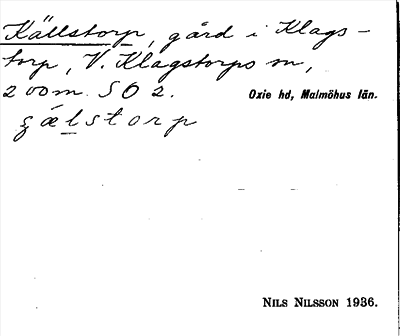 Källstorp, gård i Klags-
torp, V. Klagstorps sn,
200 m. SO 2.
Oxie hd, Malmöhus län.
çælstorp
NILS NILSSON 1936.